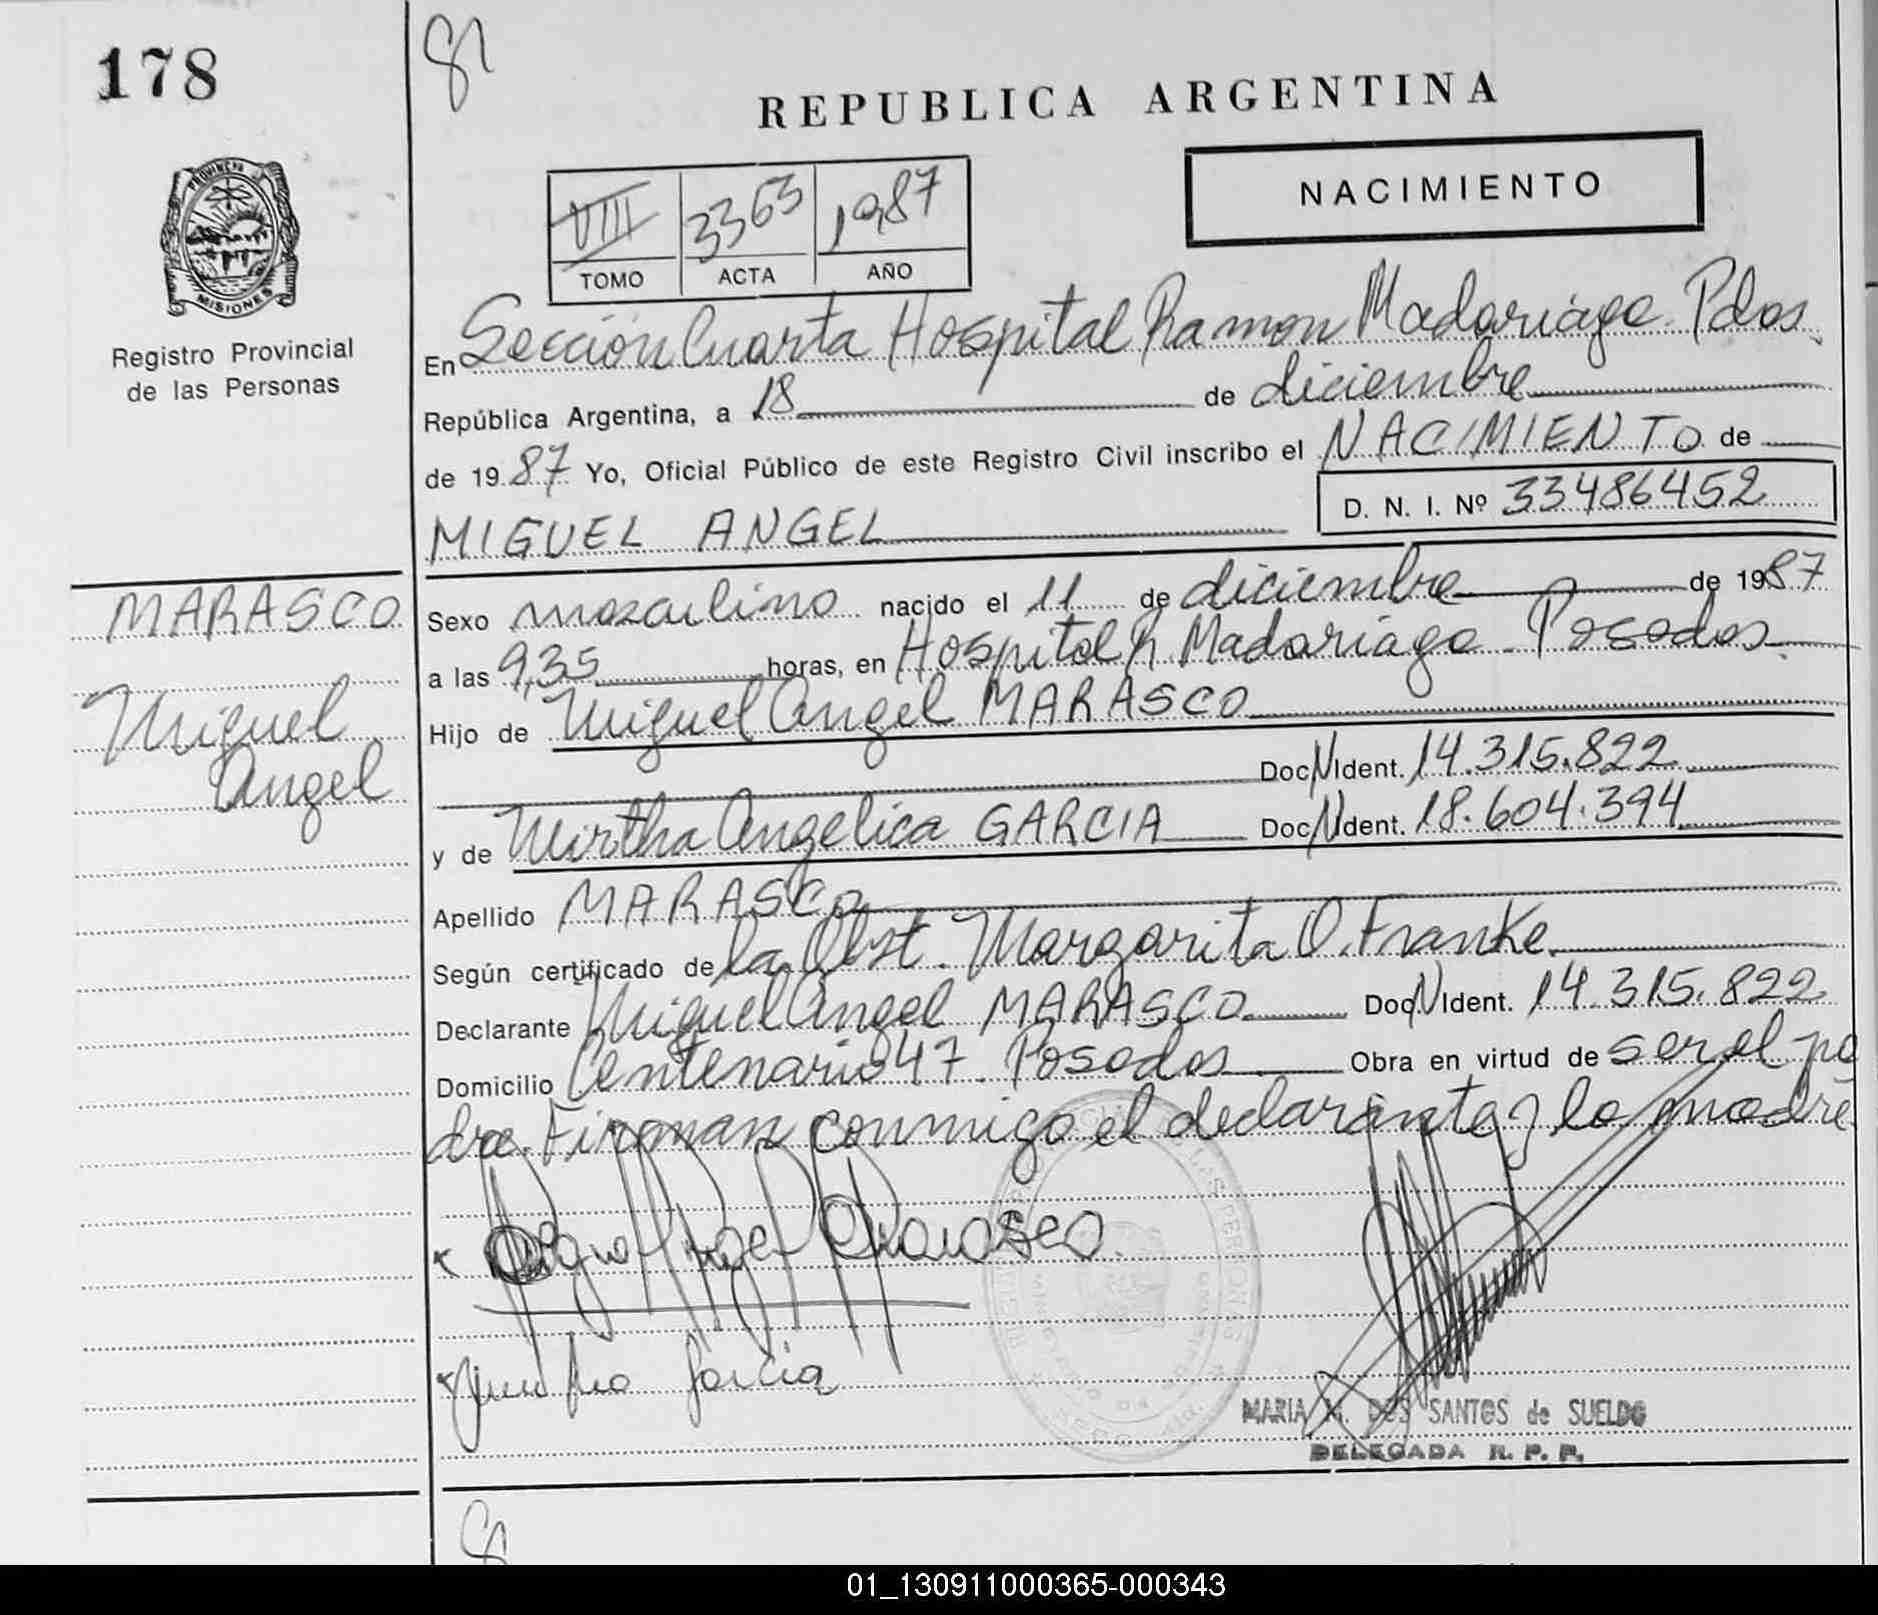 178
81
REPUBLICA ARGENTINA
PROVINCIA
MISIONES
Registro Provincial
de las Personas
VIII 3363 1987
TOMO ACTA AÑO
NACIMIENTO
En Sección Cuarta Hospital Ramon Madariaga. Pdas.
República Argentina, a 18 de diciembre
de 1987 Yo, Oficial Público de este Registro Civil inscribo el NACIMIENTO de
D. N. I. Nº 33486452
MIGUEL ANGEL
MARASCO
Miguel
Angel
Sexo masculino nacido el 11 de diciembre de 1987
a las 9,35 horas, en Hospital R. Madariaga - Posadas.
Hijo de Miguel Angel MARASCO
Doc. N. Ident. 14.315.822
y de Mirtha Angelica GARCIA Doc. N. Ident. 18.604.394
Apellido MARASCO
Según certificado de la Obst. Margarita O. Franke.
Declarante Miguel Angel MARASCO Doc. N. Ident. 14.315.822
Domicilio Centenario 47. Posadas Obra en virtud de ser el pa
dre. Firman conmigo el declarante y la madre
Angel Marasco
Garcia
MARIA M. DOS SANTOS de SUELDO
DELEGADA R. P. P.
01_130911000365-000343